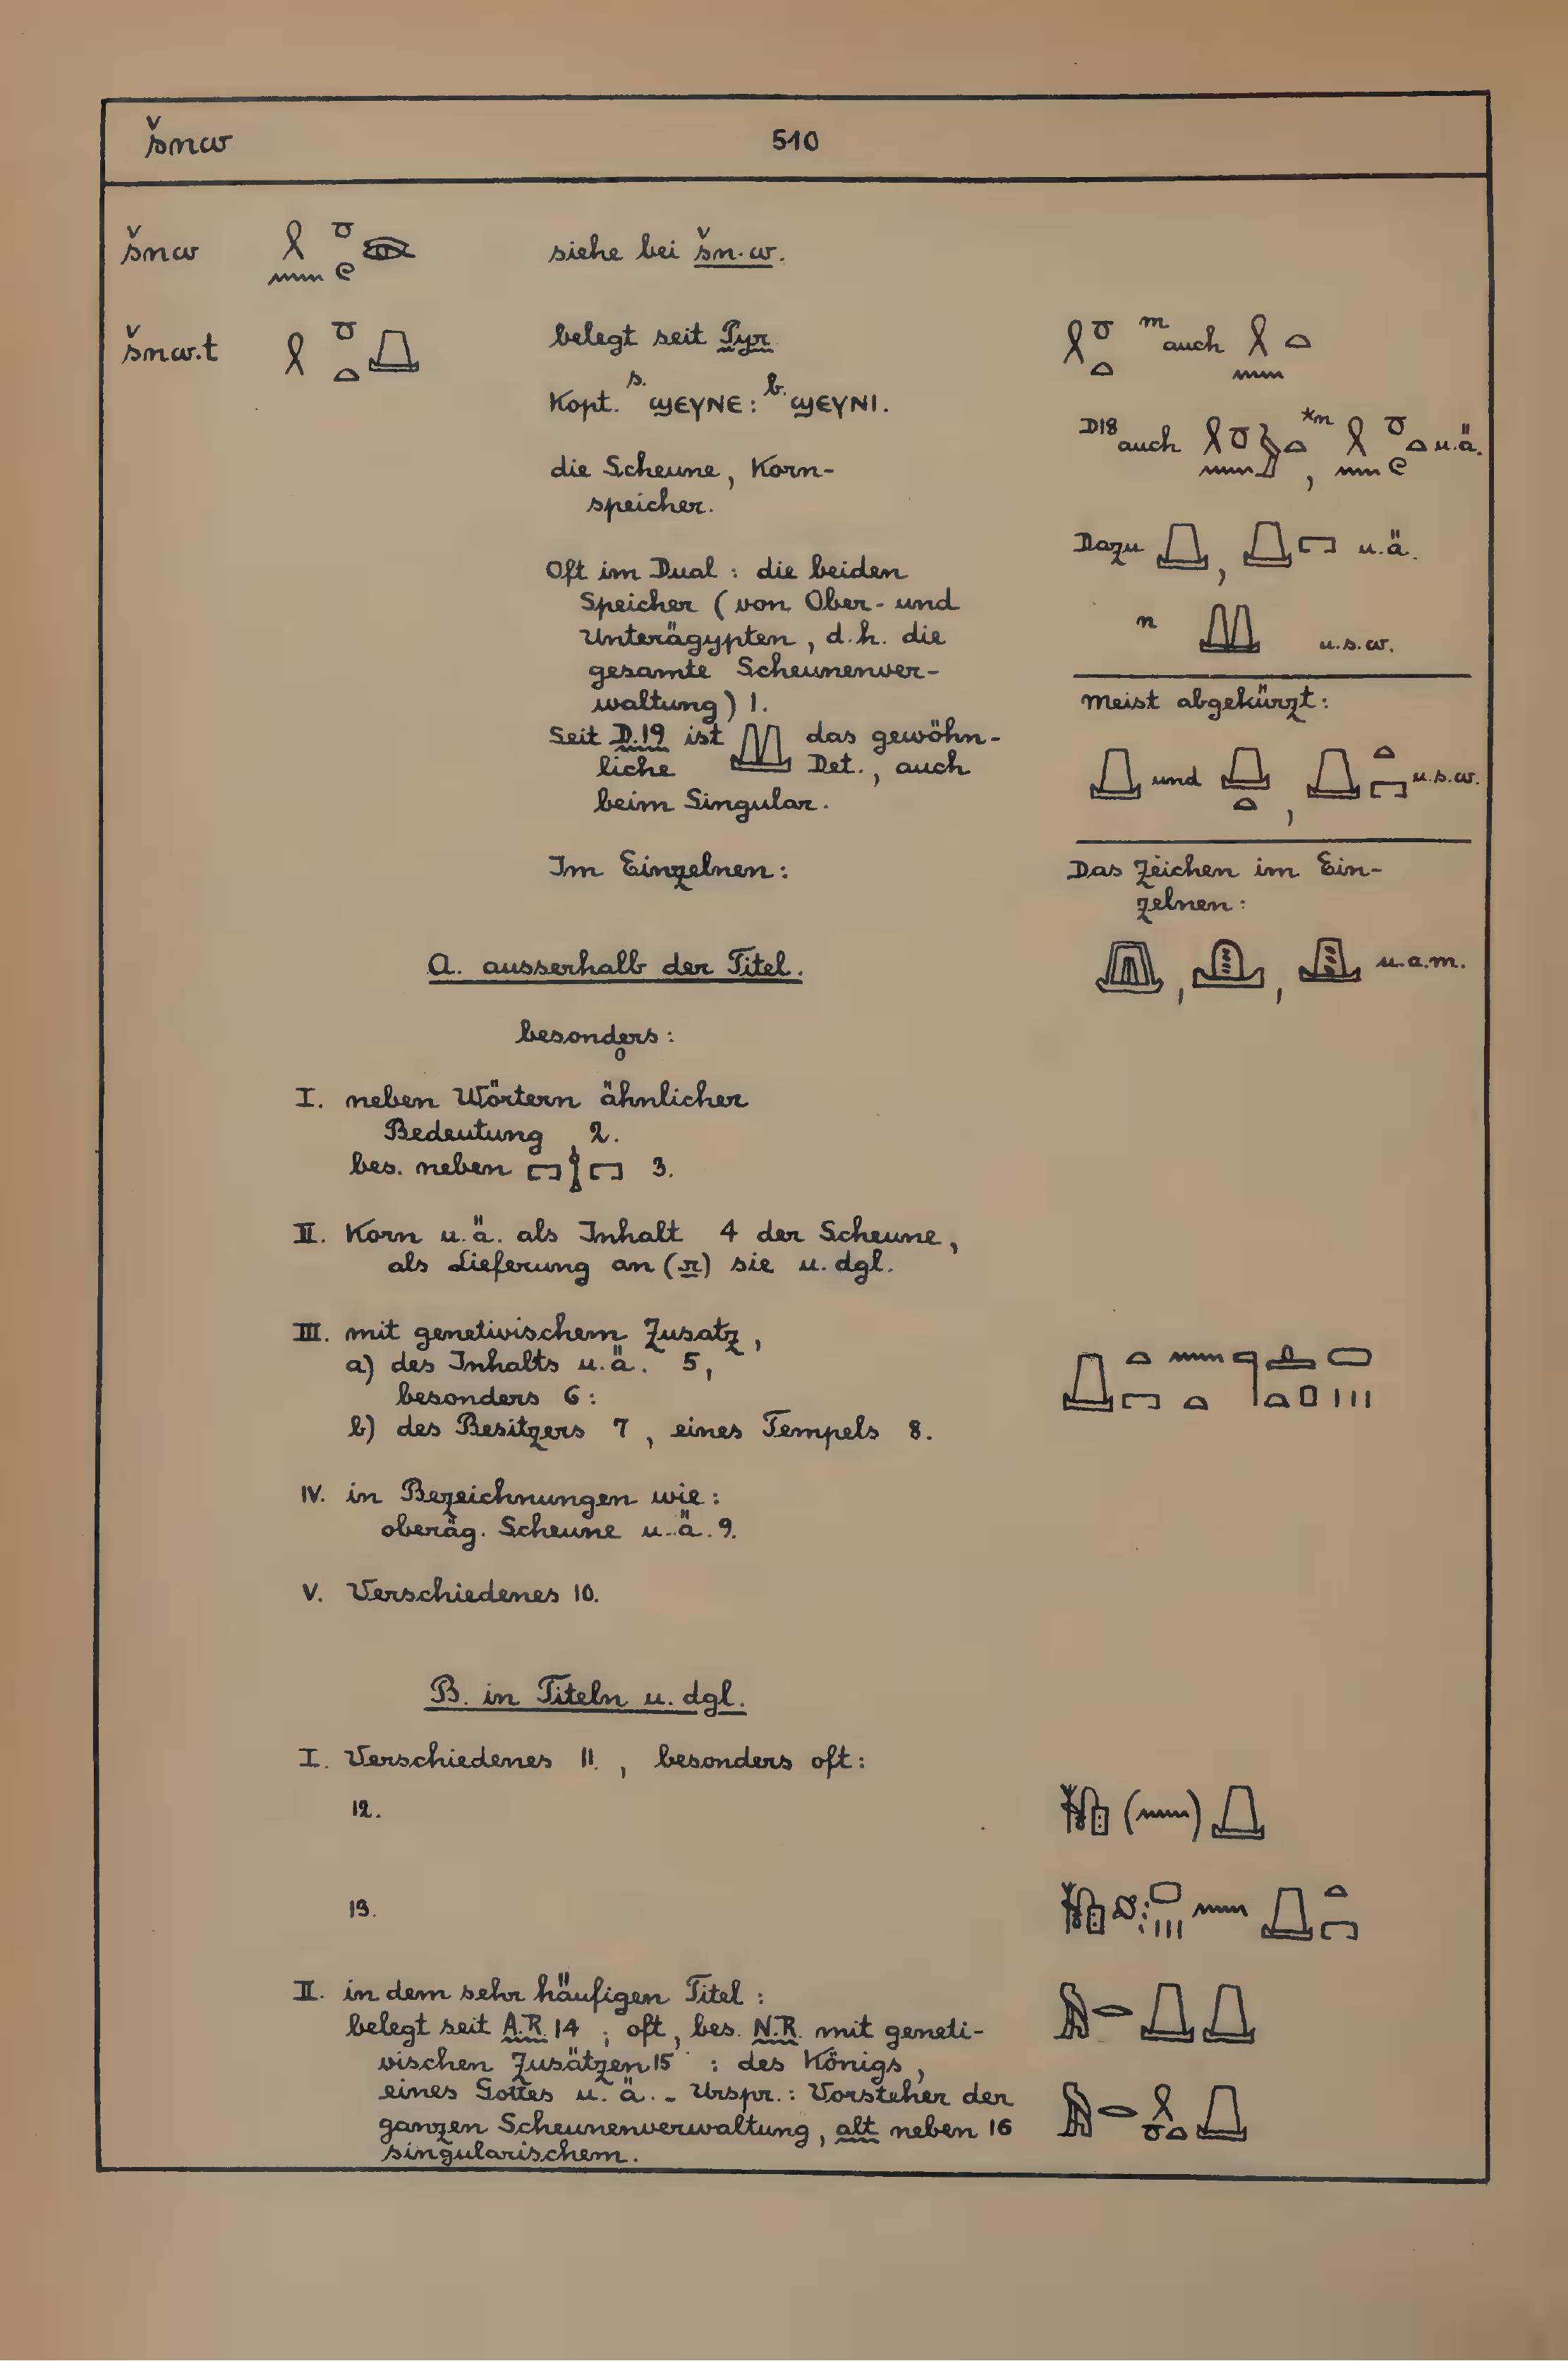 šnw 510
šnw siehe bei šn.w.
šnw.t belegt seit Pyr.
Kopt. s. ϣⲉⲩⲛⲉ : b. ϣⲉⲩⲛⲓ.
die Scheune, Korn-
speicher.
Oft im Dual : die beiden
Speicher (von Ober- und
Unterägypten, d.h. die
gesamte Scheunenver-
waltung) 1.
Seit D.19 ist das gewöhn-
liche Det., auch
beim Singular.
Im Einzelnen :
m auch
D18 auch *m , u.ä.
Dazu , u.ä.
n u.s.w.
meist abgekürzt :
und , u.s.w.
Das Zeichen im Ein-
zelnen :
, , u.a.m.
A. ausserhalb der Titel.
besonders :
I. neben Wörtern ähnlicher
Bedeutung 2.
bes. neben 3.
II. Korn u.ä. als Inhalt 4 der Scheune,
als Lieferung an (r) sie u. dgl.
III. mit genetivischem Zusatz,
a) des Inhalts u.ä. 5,
besonders 6 :
b) des Besitzers 7, eines Tempels 8.
IV. in Bezeichnungen wie :
oberäg. Scheune u.ä. 9.
V. Verschiedenes 10.
B. in Titeln u. dgl.
I. Verschiedenes 11., besonders oft :
12.
13.
II. in dem sehr häufigen Titel :
belegt seit A.R. 14 ; oft, bes. N.R. mit geneti-
vischen Zusätzen 15 : des Königs,
eines Gottes u. ä. - Urspr. : Vorsteher der
ganzen Scheunenverwaltung, alt neben 16
singularischem.